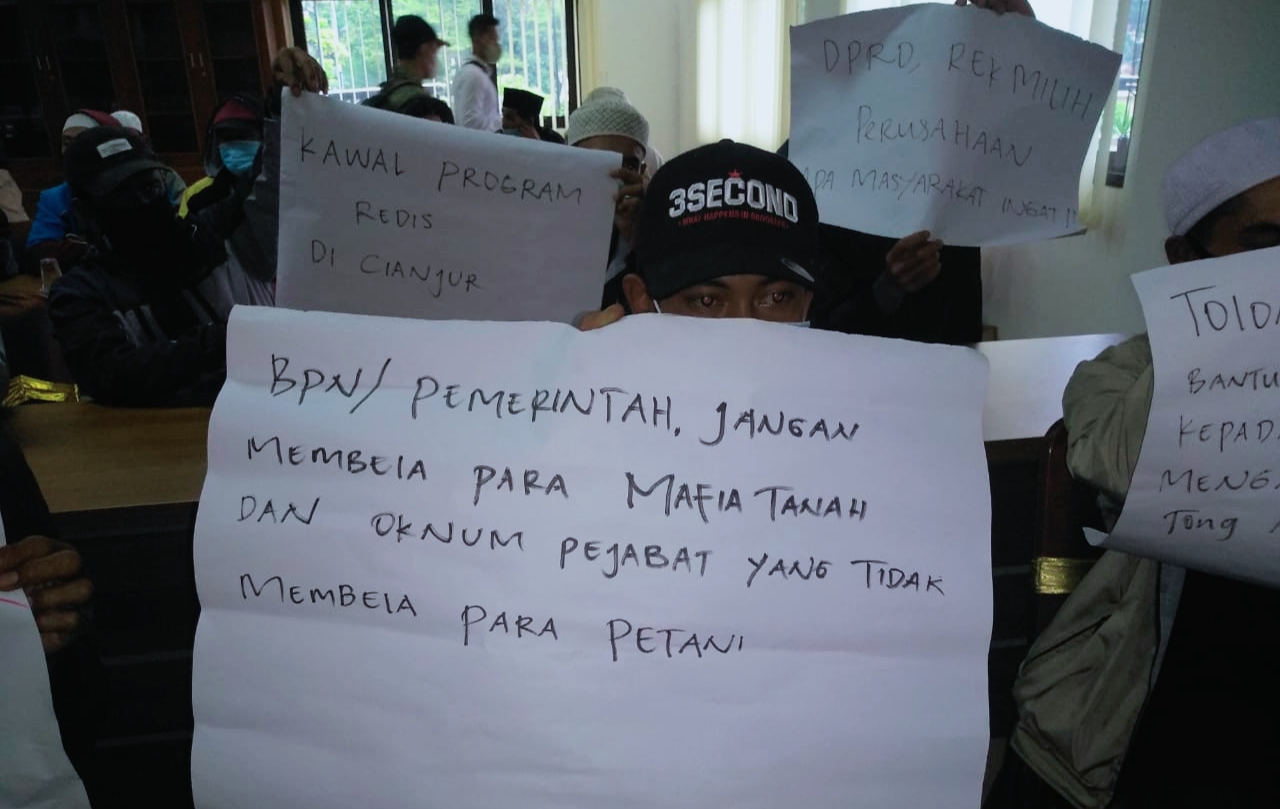 KAWAL PROGRAM
REDIS
DI CIANJUR
DPRD, REK MILIH
PERUSAHAAN
MASYARAKAT INGAT !!
3SECOND
BPN/ PEMERINTAH, JANGAN
MEMBELA PARA MAFIA TANAH
DAN OKNUM PEJABAT YANG TIDAK
MEMBELA PARA PETANI
BANTU
KEPAD
MENG
Tong